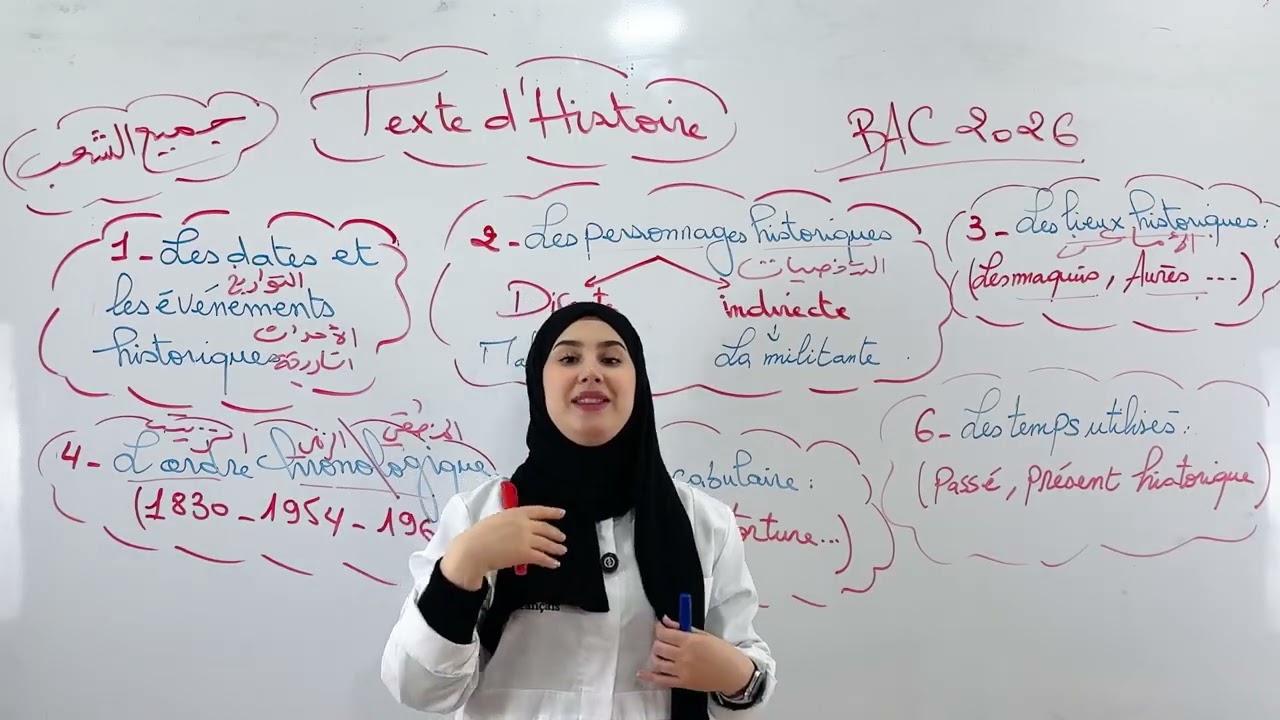 Texte d'Histoire
جميع الشعب
BAC 2026
1- Les dates et
التواريخ
les événements
الأحداث
historiques
2- Les personnages historiques
الشخصيات
indirecte
La militante
3- Les lieux historiques:
الأماكن
(Les maquis, Aurès ...)
4- L'ordre chronologique
الترتيب الزمني
(1830-1954-196
cabulaire:
torture...)
6- Les temps utilisés:
(Passé, présent historique)